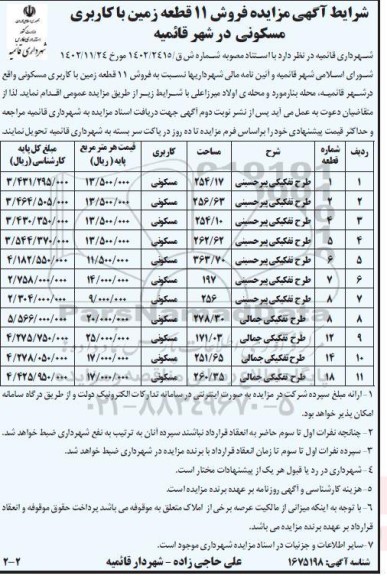 شرایط آگهی مزایده فروش ۱۱ قطعه زمین با کاربری
مسکونی در شهر قائمیه
شهرداری قائمیه
شهرداری قائمیه در نظر دارد با استناد مصوبه شماره ش ق/۱۴۰۲/۲۴۱۵ مورخ ۱۴۰۲/۱۱/۲۴
شورای اسلامی شهر قائمیه و آئین نامه مالی شهرداریها نسبت به فروش ۱۱ قطعه زمین با کاربری مسکونی واقع
درشهر قائمیه، محله بنارمورد و محله ی اولاد میرزاعلی با شرایط زیر از طریق مزایده عمومی اقدام نماید. لذا از
متقاضیان دعوت به عمل می آید پس از نشر نوبت دوم آگهی جهت دریافت اسناد مزایده به شهرداری قائمیه مراجعه
و حداکثر قیمت پیشنهادی خود را براساس فرم مزایده تا ده روز در پاکت سر بسته به شهرداری قائمیه تحویل نمایند.
ردیف شماره قطعه شرح مساحت کاربری قیمت هر متر مربع پایه (ریال) مبلغ کل پایه کارشناسی (ریال)
۱ ۱ طرح تفکیکی پیرحسینی ۲۵۴/۱۷ مسکونی ۱۳/۵۰۰/۰۰۰ ۳/۴۳۱/۲۹۵/۰۰۰
۲ ۲ طرح تفکیکی پیرحسینی ۲۵۶/۶۳ مسکونی ۱۳/۵۰۰/۰۰۰ ۳/۴۶۴/۵۰۵/۰۰۰
۳ ۴ طرح تفکیکی پیرحسینی ۲۵۴/۱۰ مسکونی ۱۳/۵۰۰/۰۰۰ ۳/۴۳۰/۳۵۰/۰۰۰
۴ ۵ طرح تفکیکی پیرحسینی ۲۶۲/۶۲ مسکونی ۱۳/۵۰۰/۰۰۰ ۳/۵۴۴/۳۷۰/۰۰۰
۵ ۶ طرح تفکیکی پیرحسینی ۳۶۳/۷۰ مسکونی ۱۱/۵۰۰/۰۰۰ ۴/۱۸۲/۵۵۰/۰۰۰
۶ ۷ طرح تفکیکی پیرحسینی ۱۹۷ مسکونی ۱۴/۰۰۰/۰۰۰ ۲/۷۵۸/۰۰۰/۰۰۰
۷ ۸ طرح تفکیکی پیرحسینی ۲۵۶ مسکونی ۹/۰۰۰/۰۰۰ ۲/۳۰۴/۰۰۰/۰۰۰
۸ ۸ طرح تفکیکی جمالی ۲۷۸/۳۰ مسکونی ۲۰/۰۰۰/۰۰۰ ۵/۵۶۶/۰۰۰/۰۰۰
۹ ۱۲ طرح تفکیکی جمالی ۱۷۱/۰۳ مسکونی ۲۵/۰۰۰/۰۰۰ ۴/۲۷۵/۷۵۰/۰۰۰
۱۰ ۱۴ طرح تفکیکی جمالی ۲۵۱/۶۵ مسکونی ۱۷/۰۰۰/۰۰۰ ۴/۲۷۸/۰۵۰/۰۰۰
۱۱ ۱۸ طرح تفکیکی جمالی ۲۶۰/۳۵ مسکونی ۱۷/۰۰۰/۰۰۰ ۴/۴۲۵/۹۵۰/۰۰۰
۱- ارائه مبلغ سپرده شرکت در مزایده به صورت اینترنتی در سامانه تدارکات الکترونیک دولت و از طریق درگاه سامانه
امکان پذیر خواهد بود.
۲- چنانچه نفرات اول تا سوم حاضر به انعقاد قرارداد نباشند سپرده آنان به ترتیب به نفع شهرداری ضبط خواهد شد.
۳- سپرده نفرات اول تا سوم تا زمان انعقاد قرارداد با برنده مزایده در شهرداری ضبط خواهد شد.
۴- شهرداری در رد یا قبول هر یک از پیشنهادات مختار است.
۵- هزینه کارشناسی و آگهی روزنامه بر عهده برنده مزایده است.
۶- با توجه به اینکه میزانی از مالکیت عرصه برخی از املاک متعلق به موقوفه می باشد پرداخت حقوق موقوفه و انعقاد
قرارداد بر عهده برنده مزایده می باشد.
۷- سایر اطلاعات و جزئیات در اسناد مزایده شهرداری موجود است.
شناسه آگهی: ۱۶۷۵۱۹۸ علی حاجی زاده - شهردار قائمیه ۲-۲
۰۲۱-۸۸۳۴۹۶۷۰-۵